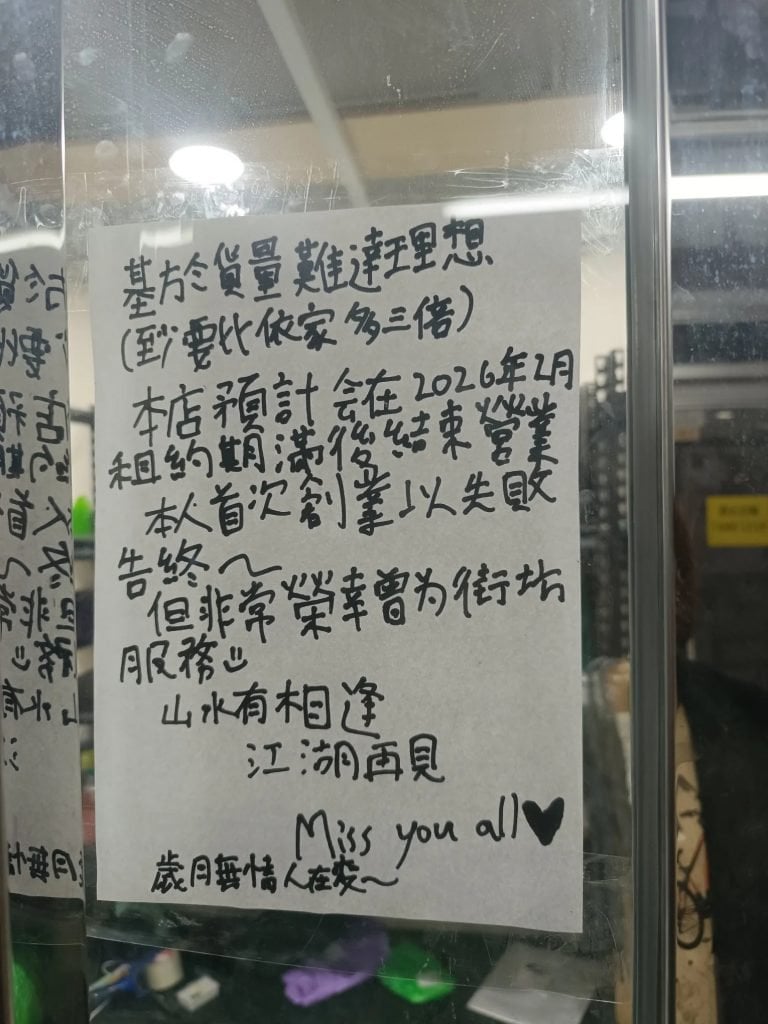 基於貨量難達理想
(到少要比依家多三倍)
本店預計会在2026年2月
租約期滿後結束營業
本人首次創業以失敗
告終～
但非常榮幸曾为街坊
服務
山水有相逢
江湖再見
Miss you all♥
歲月無情人在变～